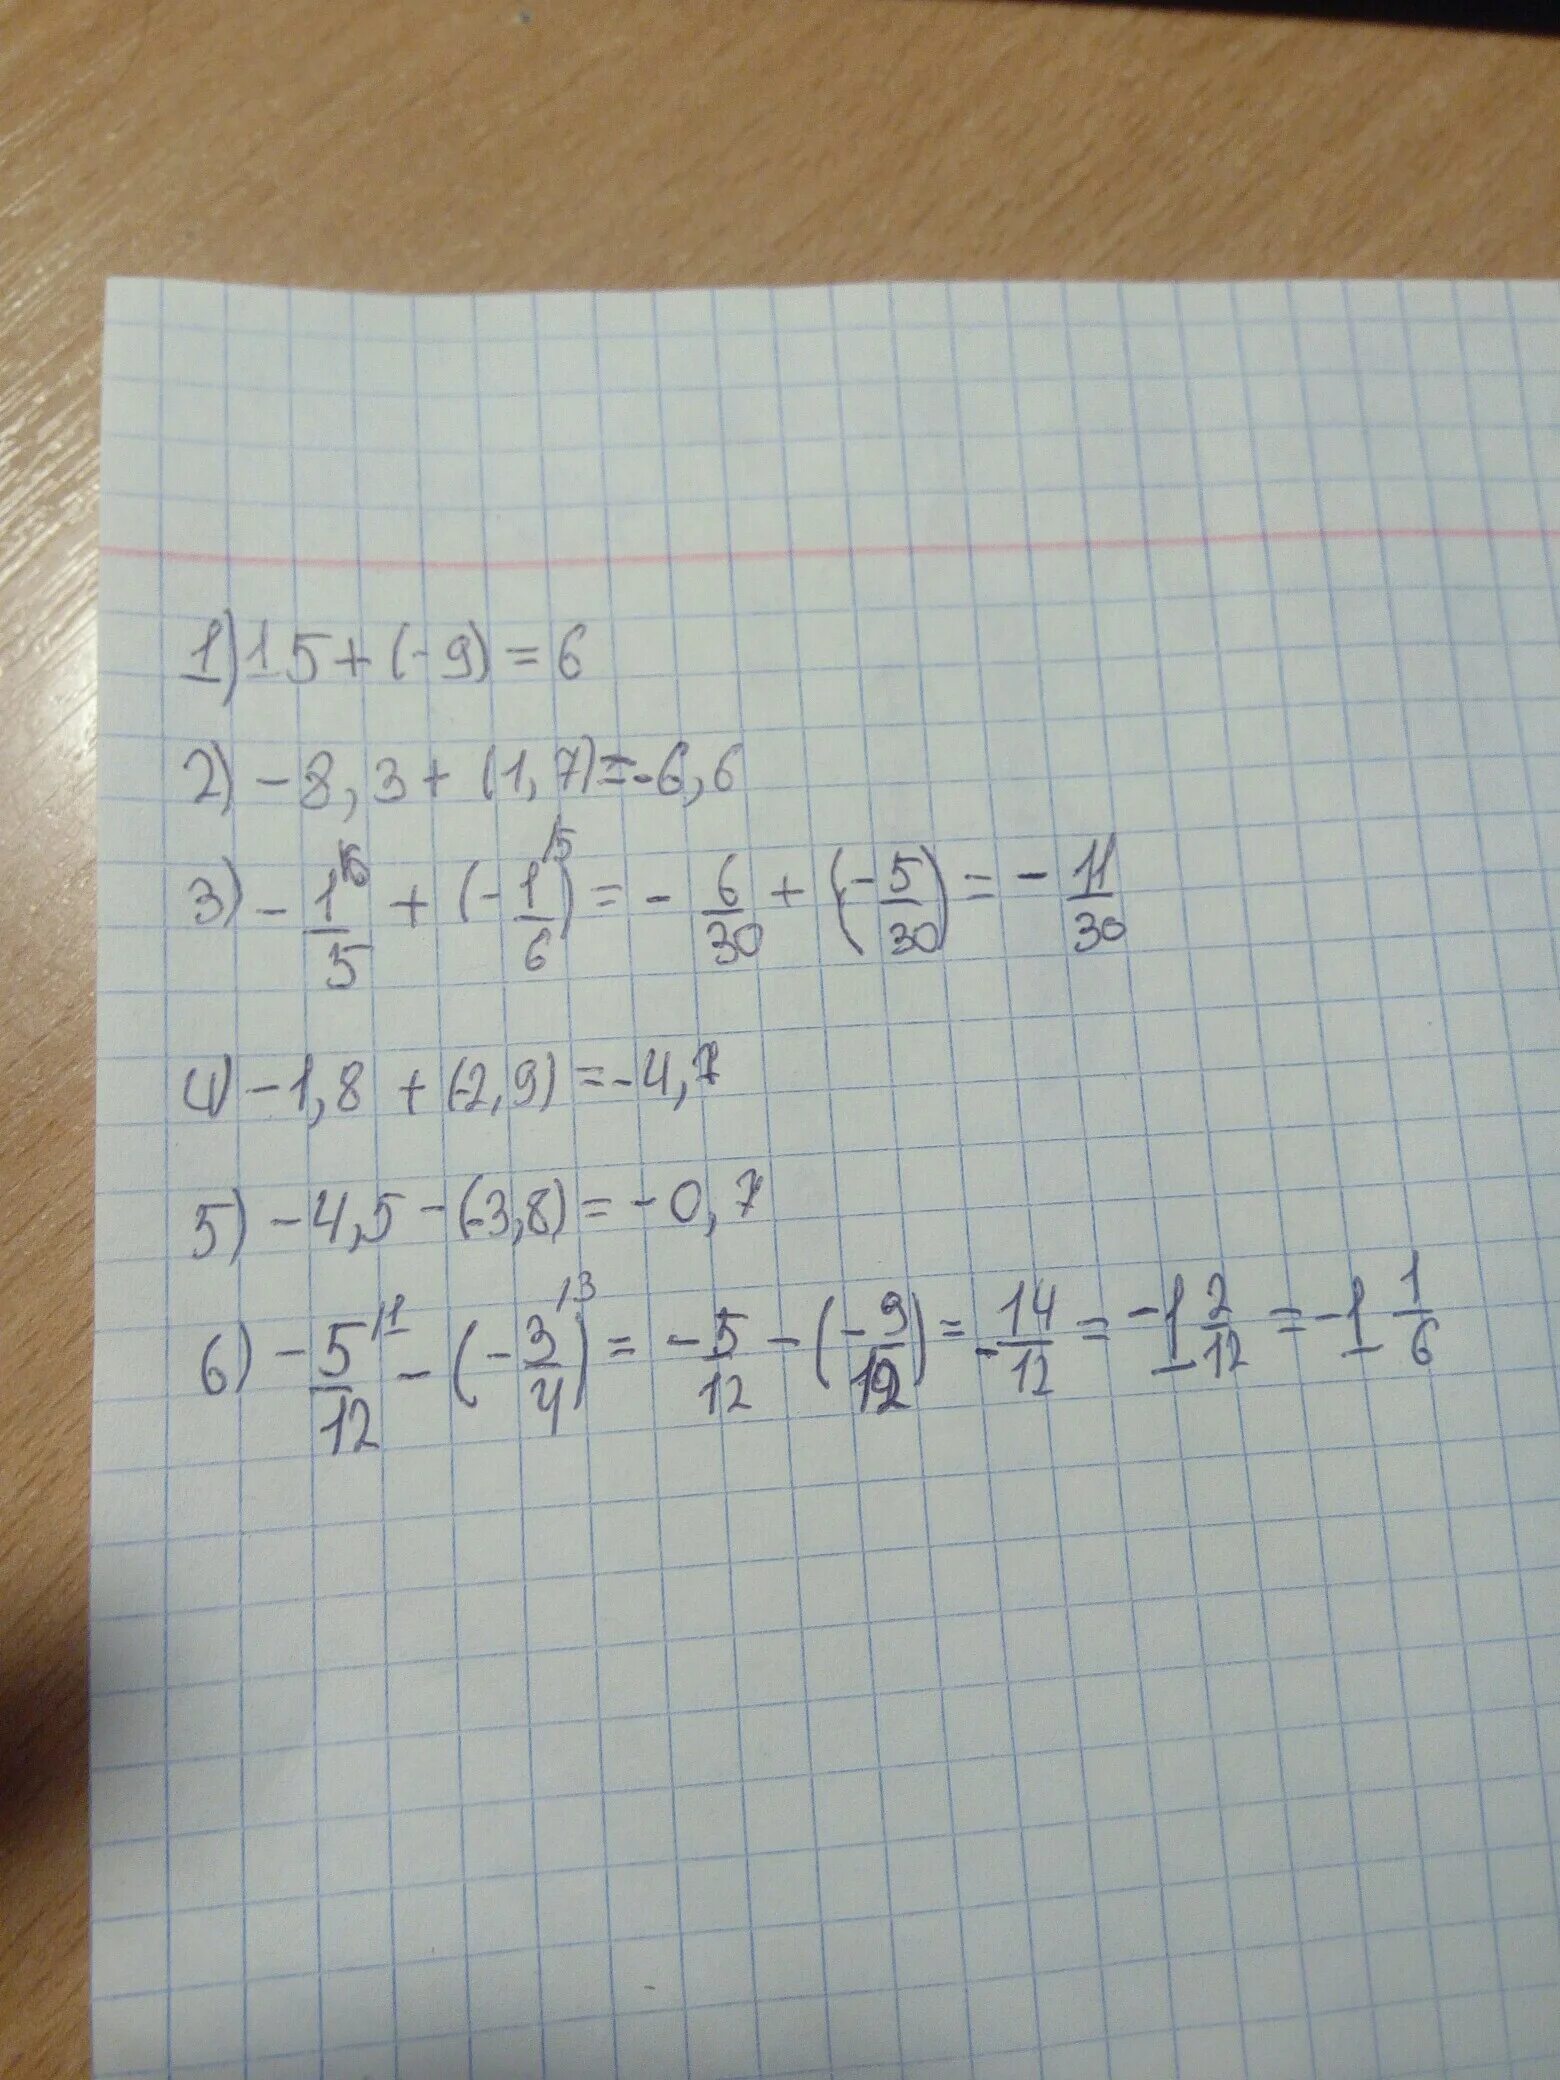 1) 15 + (-9) = 6
2) -8,3 + (1,7) = -6,6
3) -1/5 ⁶ + (-1/6 ⁵) = -6/30 + (-5/30) = -11/30
4) -1,8 + (-2,9) = -4,7
5) -4,5 - (-3,8) = -0,7
6) -5/12 ¹ - (-3/4 ³) = -5/12 - (-9/12) = -14/12 = -1 2/12 = -1 1/6